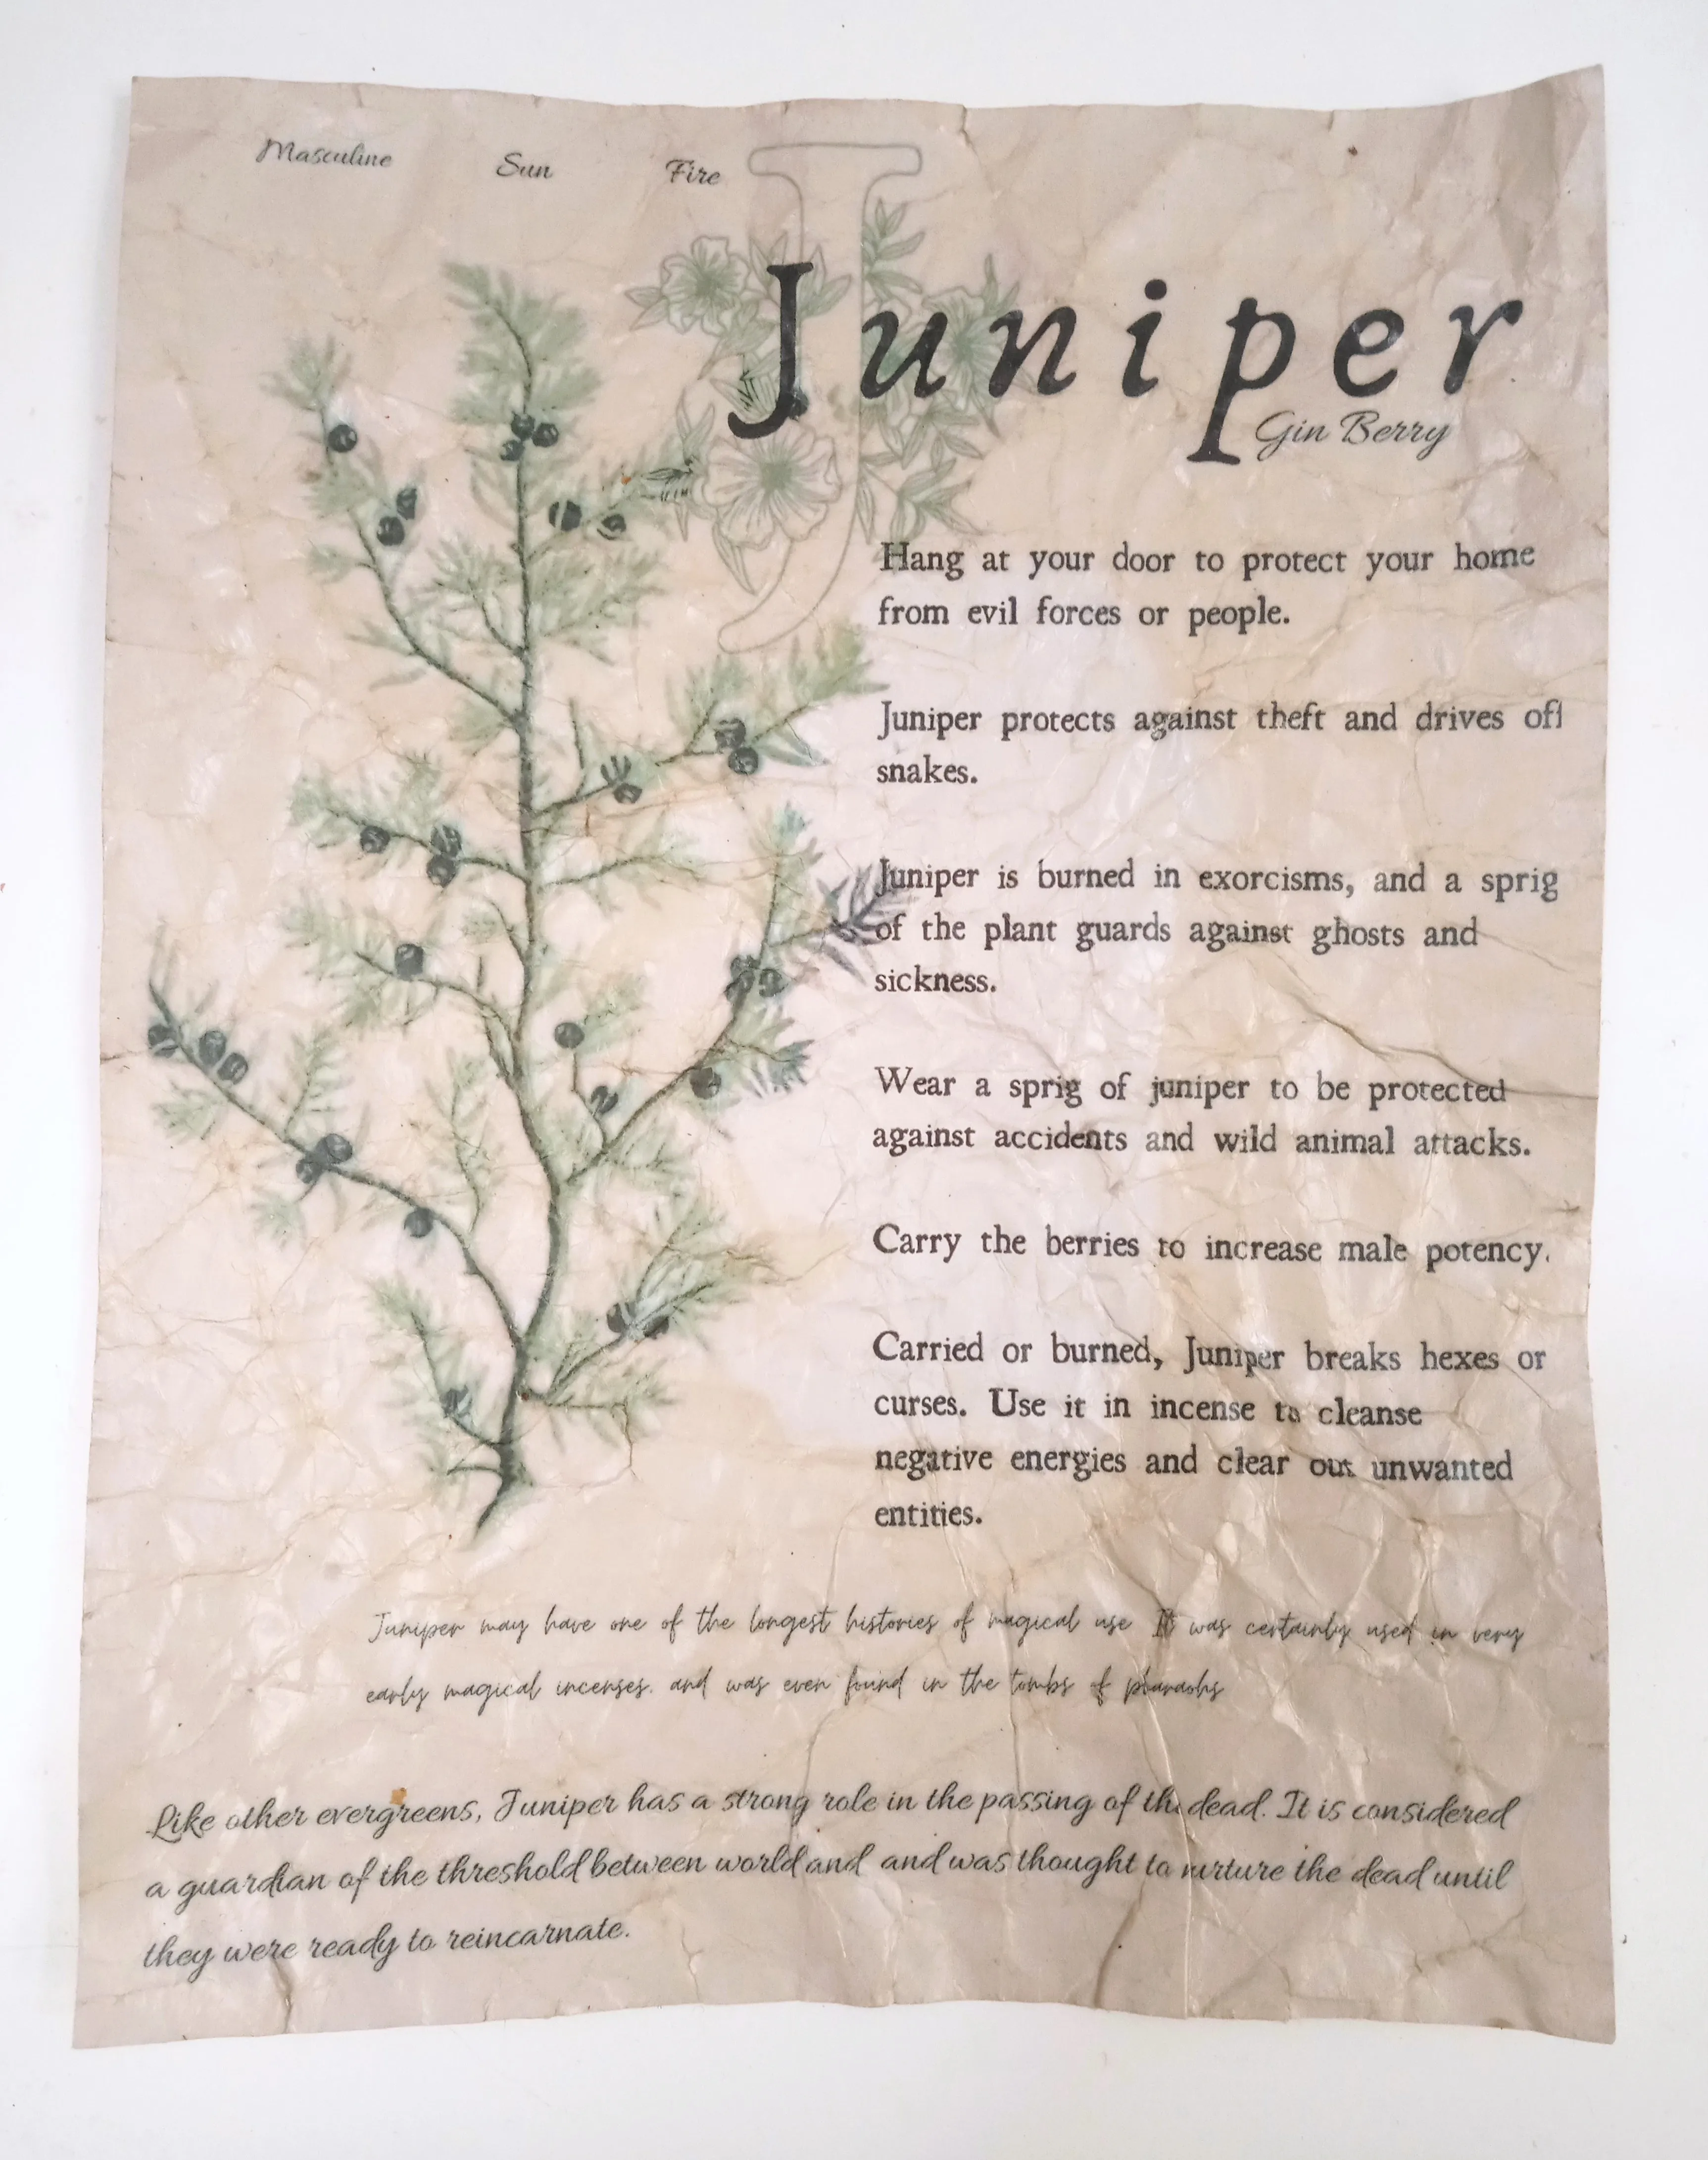 Masculine Sun Fire
Juniper
Gin Berry
Hang at your door to protect your home
from evil forces or people.
Juniper protects against theft and drives off
snakes.
Juniper is burned in exorcisms, and a sprig
of the plant guards against ghosts and
sickness.
Wear a sprig of juniper to be protected
against accidents and wild animal attacks.
Carry the berries to increase male potency.
Carried or burned, Juniper breaks hexes or
curses. Use it in incense to cleanse
negative energies and clear out unwanted
entities.
Juniper may have one of the longest histories of magical use It was certainly used in very
early magical incenses. and was even found in the tombs of pharaohs
Like other evergreens, Juniper has a strong role in the passing of the dead. It is considered
a guardian of the threshold between world and and was thought to nurture the dead until
they were ready to reincarnate.